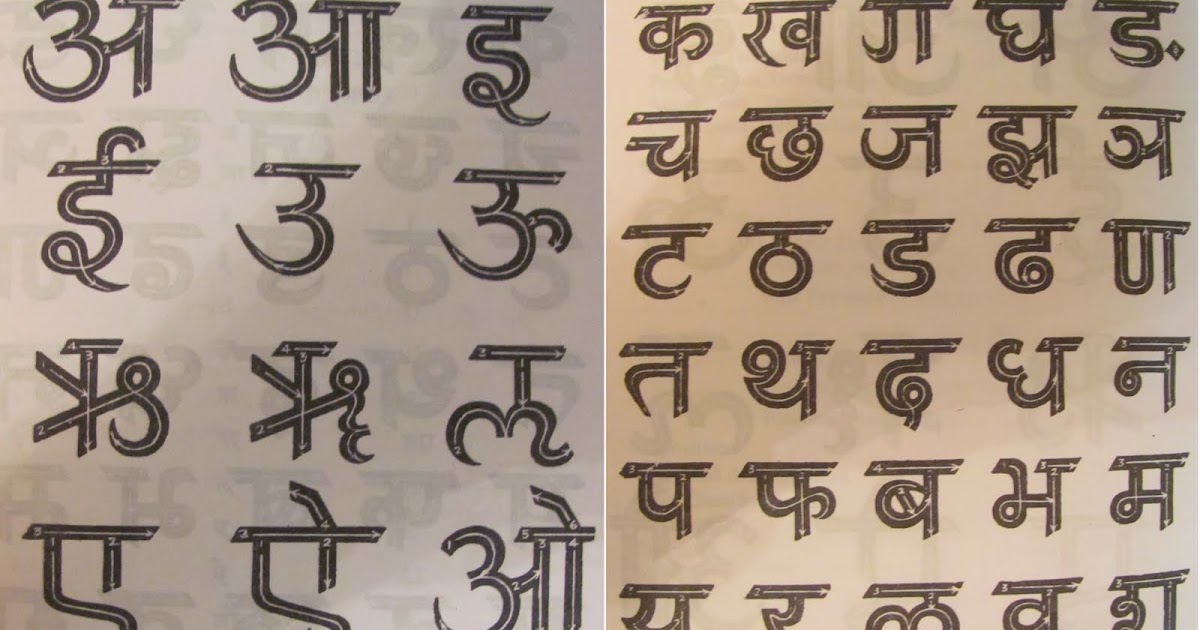 अ आ इ
ई उ ऊ
ऋ ॠ ऌ
ए ऐ ओ
क ख ग घ ङ
च छ ज झ ञ
ट ठ ड ढ ण
त थ द ध न
प फ ब भ म
य र ल व श